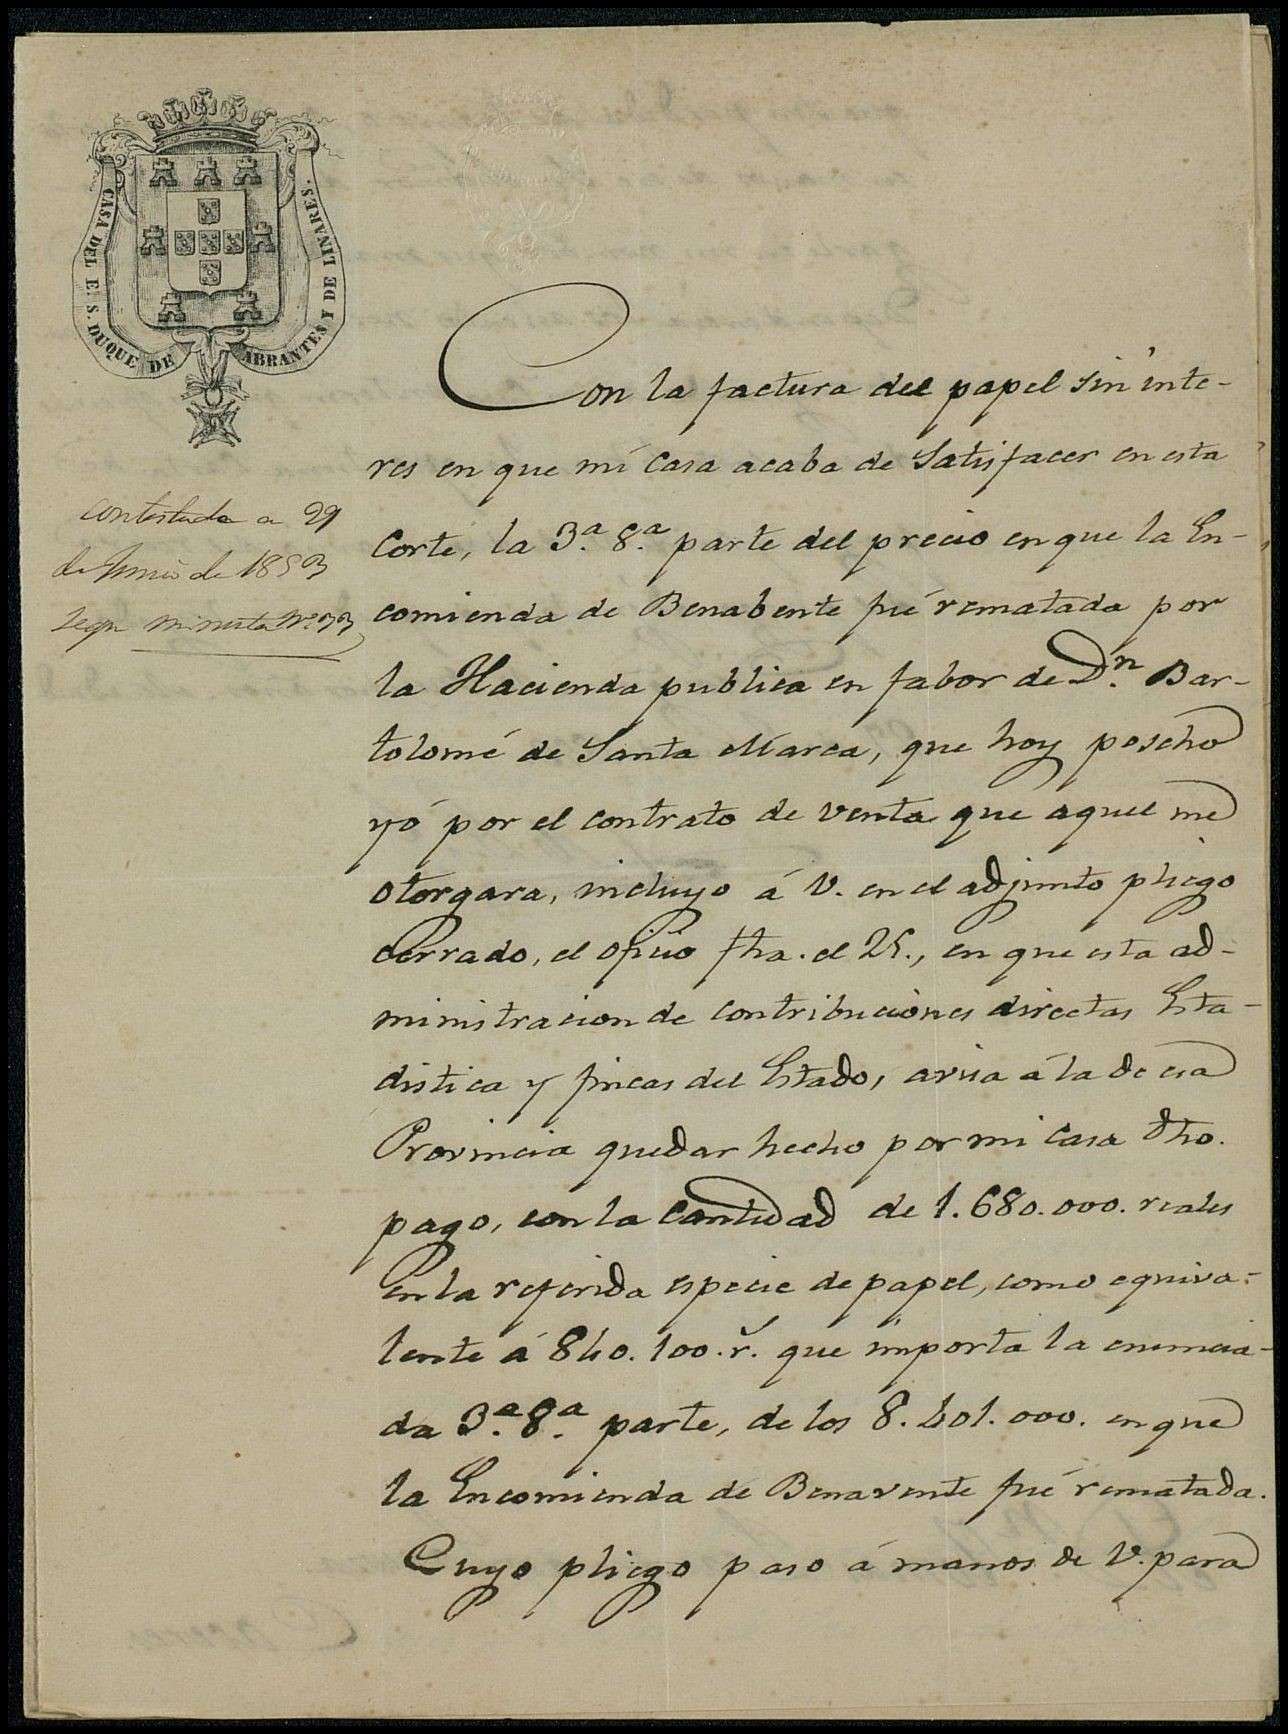 CASA DEL E. S. DUQUE DE ABRANTES Y DE LINARES.
contestada a 29
de Junio de 1853
segn minuta Nº 33
Con la factura del papel sin inte-
res en que mi casa acaba de satisfacer en esta
Corte, la 3.ª 8.ª parte del precio en que la En-
comienda de Benabente fué rematada por
la Hacienda publica en fabor de Dn. Bar-
tolomé de Santa Marca, que hoy poseho
yó por el contrato de venta que aquel me
otorgara, incluyo á V. en el adjunto pliego
cerrado, el ofiio fha. el 25., en que esta ad-
ministracion de contribuciónes directas Esta-
distica y fincas del Estado, avisa á la de esa
Provincia quedar hecho por mi casa dho.
pago, con la cantidad de 1.680.000. reales
en la referida especie de papel, como equiva-
lente á 840.100. r. que importa la enuncia-
da 3.ª 8.ª parte, de los 8.401.000. en que
la Encomienda de Benavente fué rematada.
Cuyo pliego paso á manos de V. para